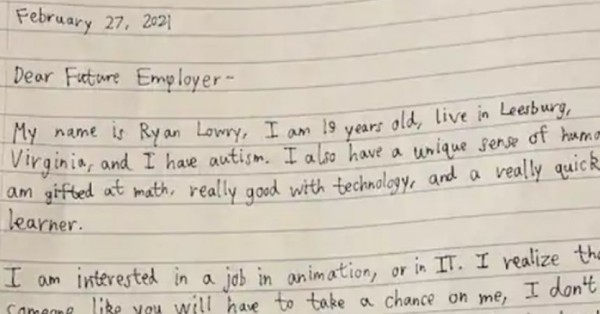 February 27, 2021
Dear Future Employer-
My name is Ryan Lowry, I am 19 years old, live in Leesburg,
Virginia, and I have autism. I also have a unique sense of humo
am gifted at math, really good with technology, and a really quick
learner.
I am interested in a job in animation, or in IT. I realize tha
someone like you will have to take a chance on me, I don't